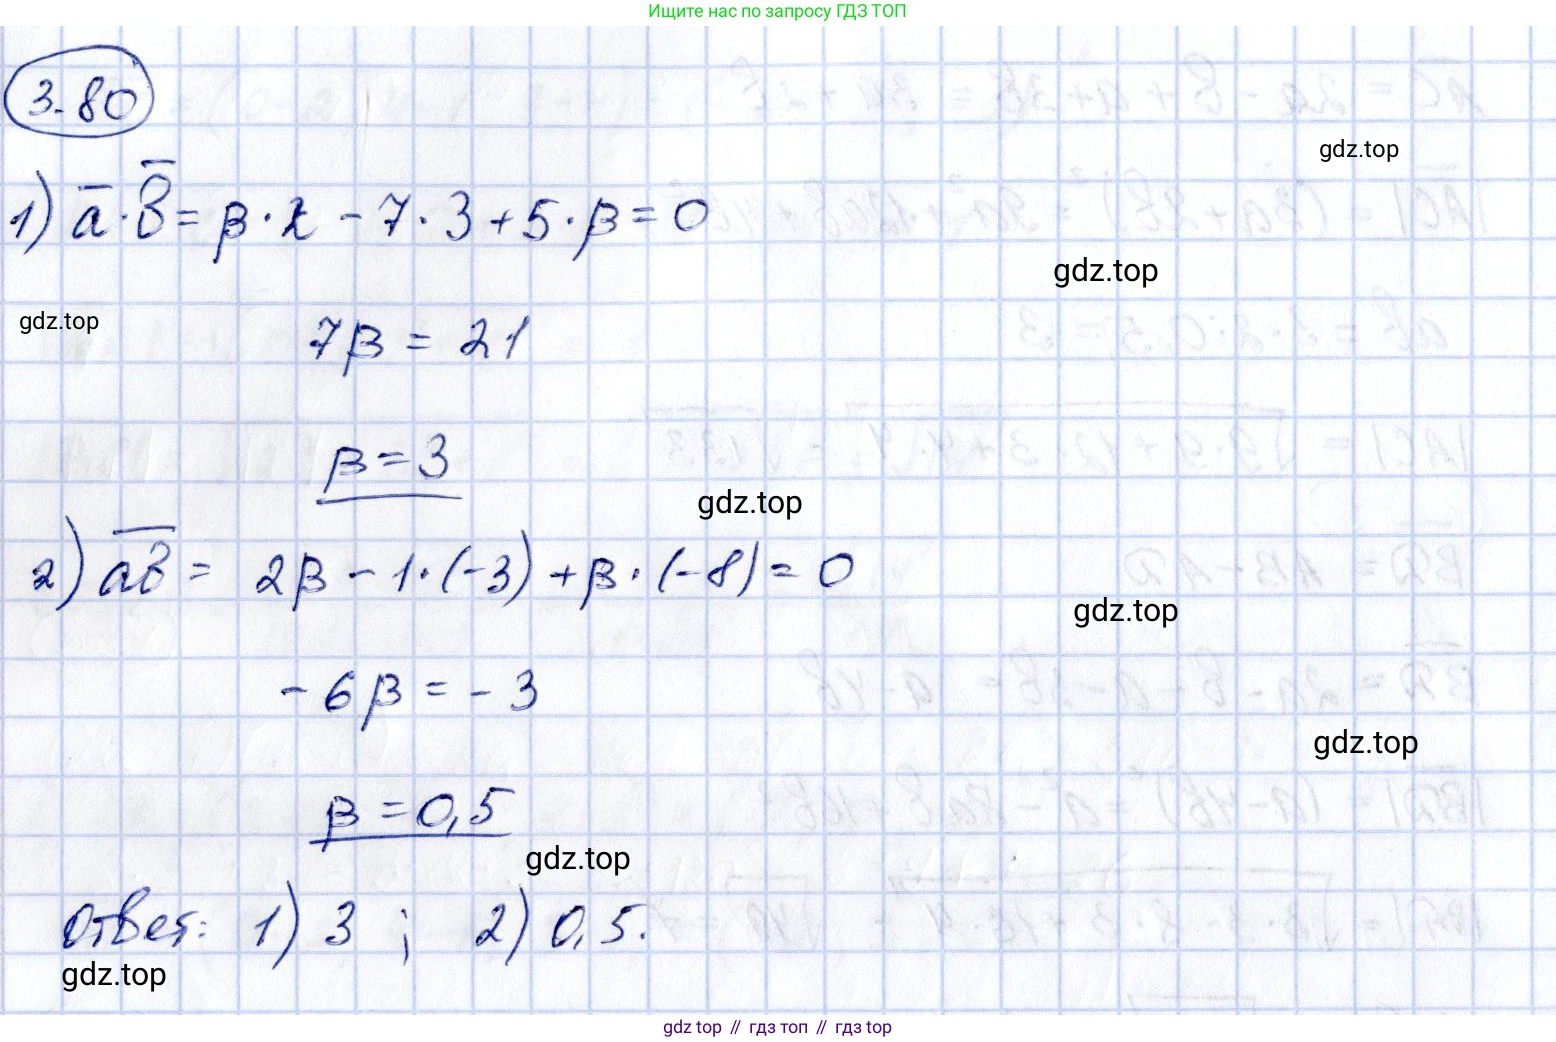 Ищите нас по запросу ГДЗ ТОП
3.80
gdz.top
1) a̅ · b̅ = β · 2 - 7 · 3 + 5 · β = 0
gdz.top
gdz.top
7β = 21
β = 3
gdz.top
2) a̅b̅ = 2β - 1 · (-3) + β · (-8) = 0
gdz.top
-6β = -3
gdz.top
β = 0,5
gdz.top
Ответ: 1) 3 ; 2) 0,5.
gdz.top
gdz.top // гдз топ // гдз top